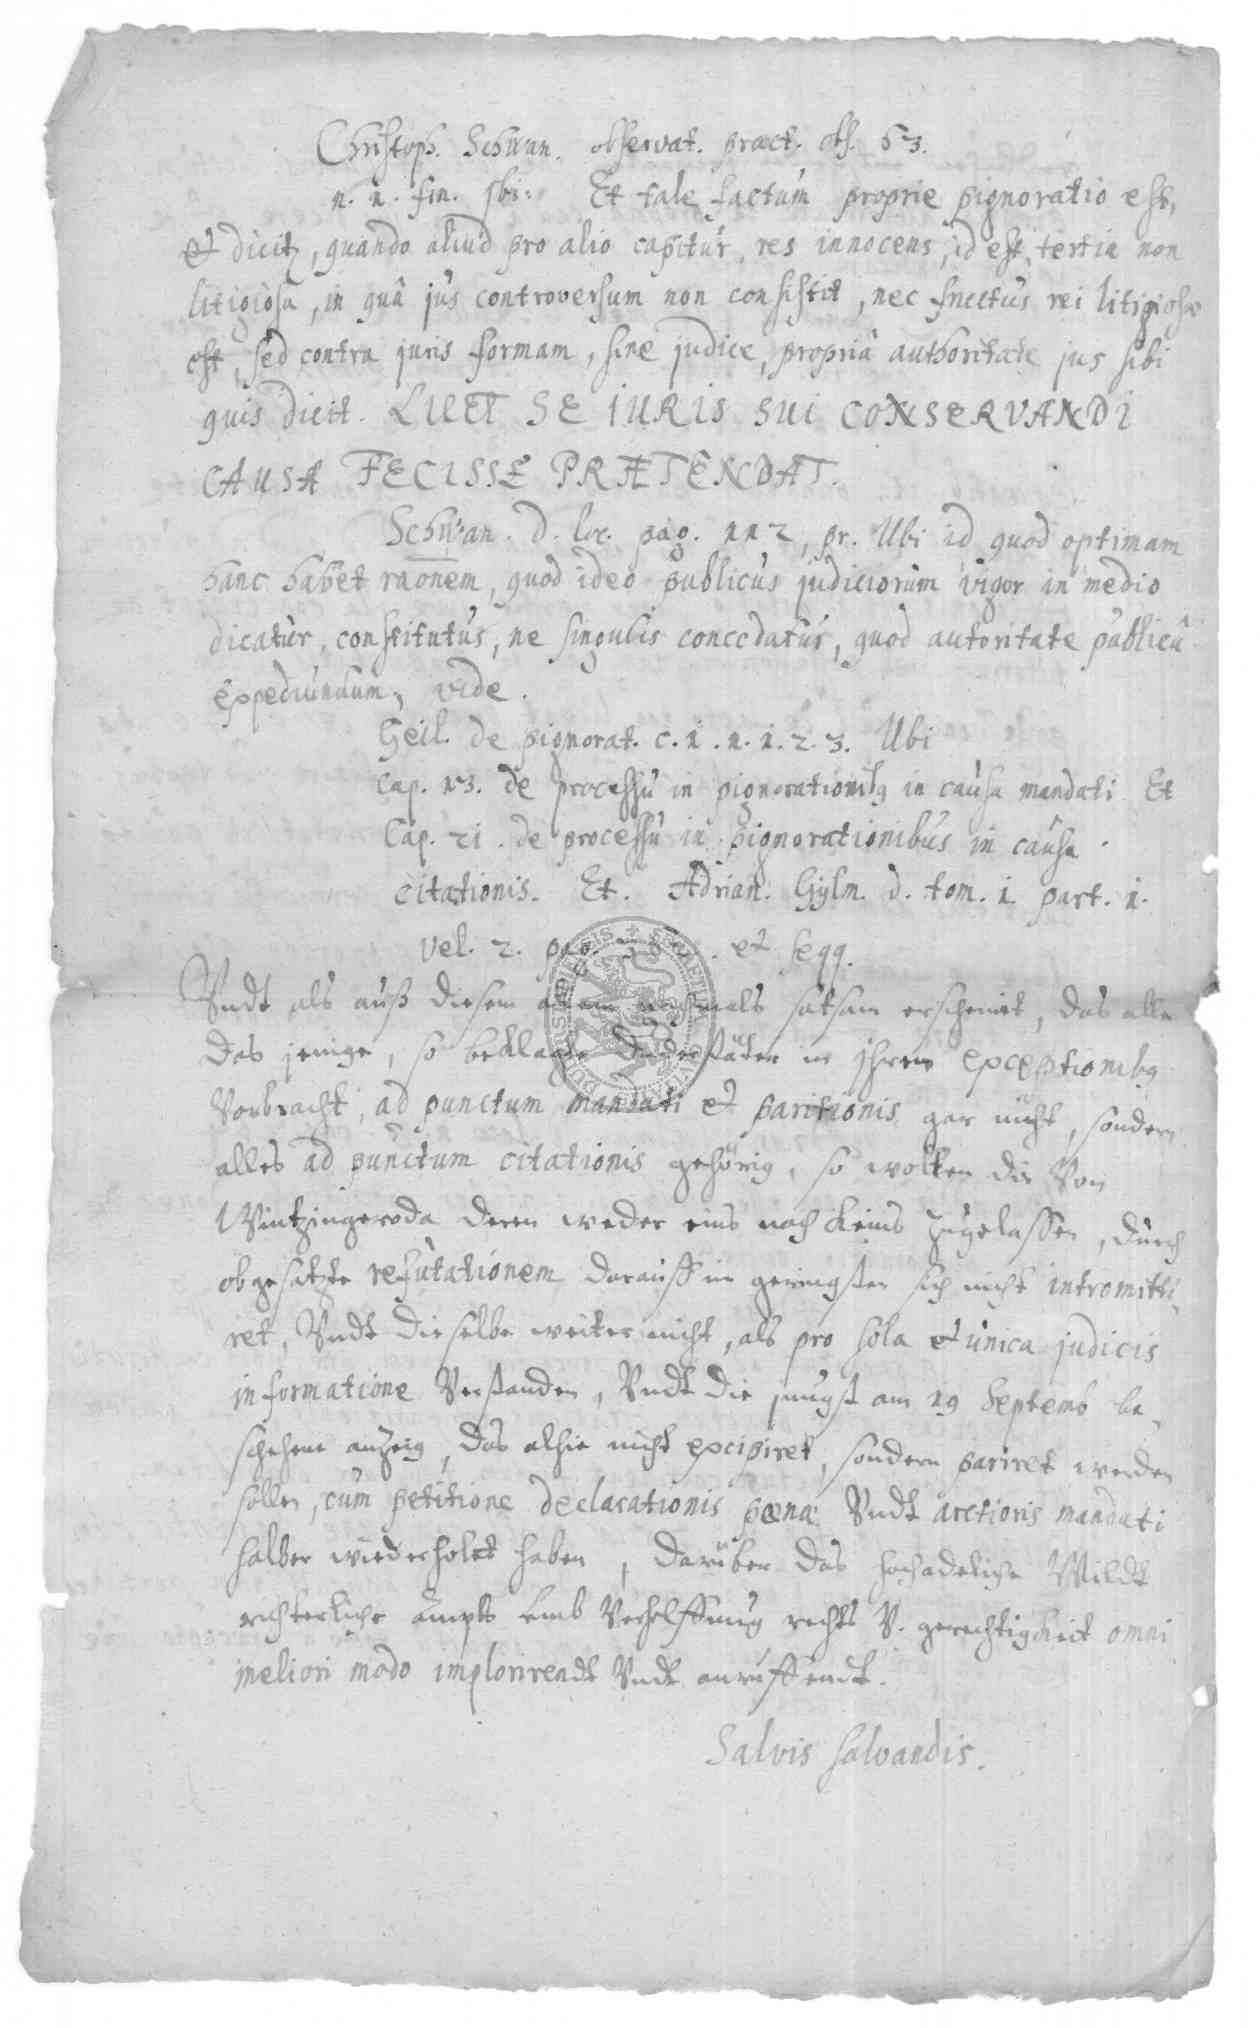 Christoph. Schwan. observat. pract. obs. 53.
n. 1. fin. ibi: Et tale factum proprie pignoratio est,
et dicitur, quando aliud pro alio capitur, res innocens, id est, tertia non
litigiosa, in quâ jus controversum non consistit, nec fructus rei litigiosæ
est, sed contra juris formam, sine judice, propriâ authoritate jus sibi
quis dicit. LICET SE IURIS SUI CONSERVANDI
CAUSA FECISSE PRÆTENDAT.
Schwan. d. loc. pag. 112, pr. Ubi id quod optimam
hanc habet raõnem, quod ideo publicus judiciorum vigor in medio
dicatur, constitutus, ne singulis concedatur, quod autoritate publicâ
expediundum, vide.
Geil. de pignorat. c. 1. n. 1. 2. 3. Ubi
Cap. 13. de processu in pignorationibus in causa mandati Et
Cap. 21. de processu in pignorationibus in causa
citationis. Et. Adrian. Gylm. d. tom. 1. part. 1.
Vel. 2. pag. et seqq.
Vndt als auß diesem satsam erscheint, das alle
das jenige, so beklagte Duderstäter in ihren exceptionibus
Vorbracht, ad punctum mandati et paritionis gar nicht, sondern
alles ad punctum citationis gehörig, so wolten die Von
Wintzingeroda deren weder eins noch keins zugelassen, durch
obgesatzte refutationem darauff im geringsten sich nicht intromitti
ret, Vndt dieselbe weiter nicht, als pro sola et unica judicis
informatione Verstanden, Vndt die jungst am 19 Septemb be
schehene anzeig, das alhie nicht excipiret, sondern pariret werden
sollen, cum petitione declarationis pœnæ Vndt arctioris mandati
halber wiederholet haben, darüber das hochadeliche Mildt
richterliche ampt umb Verhelffung rechts V. gerechtigkeit omni
meliori modo implorirendt Vndt anruffendt.
Salvis salvandis.